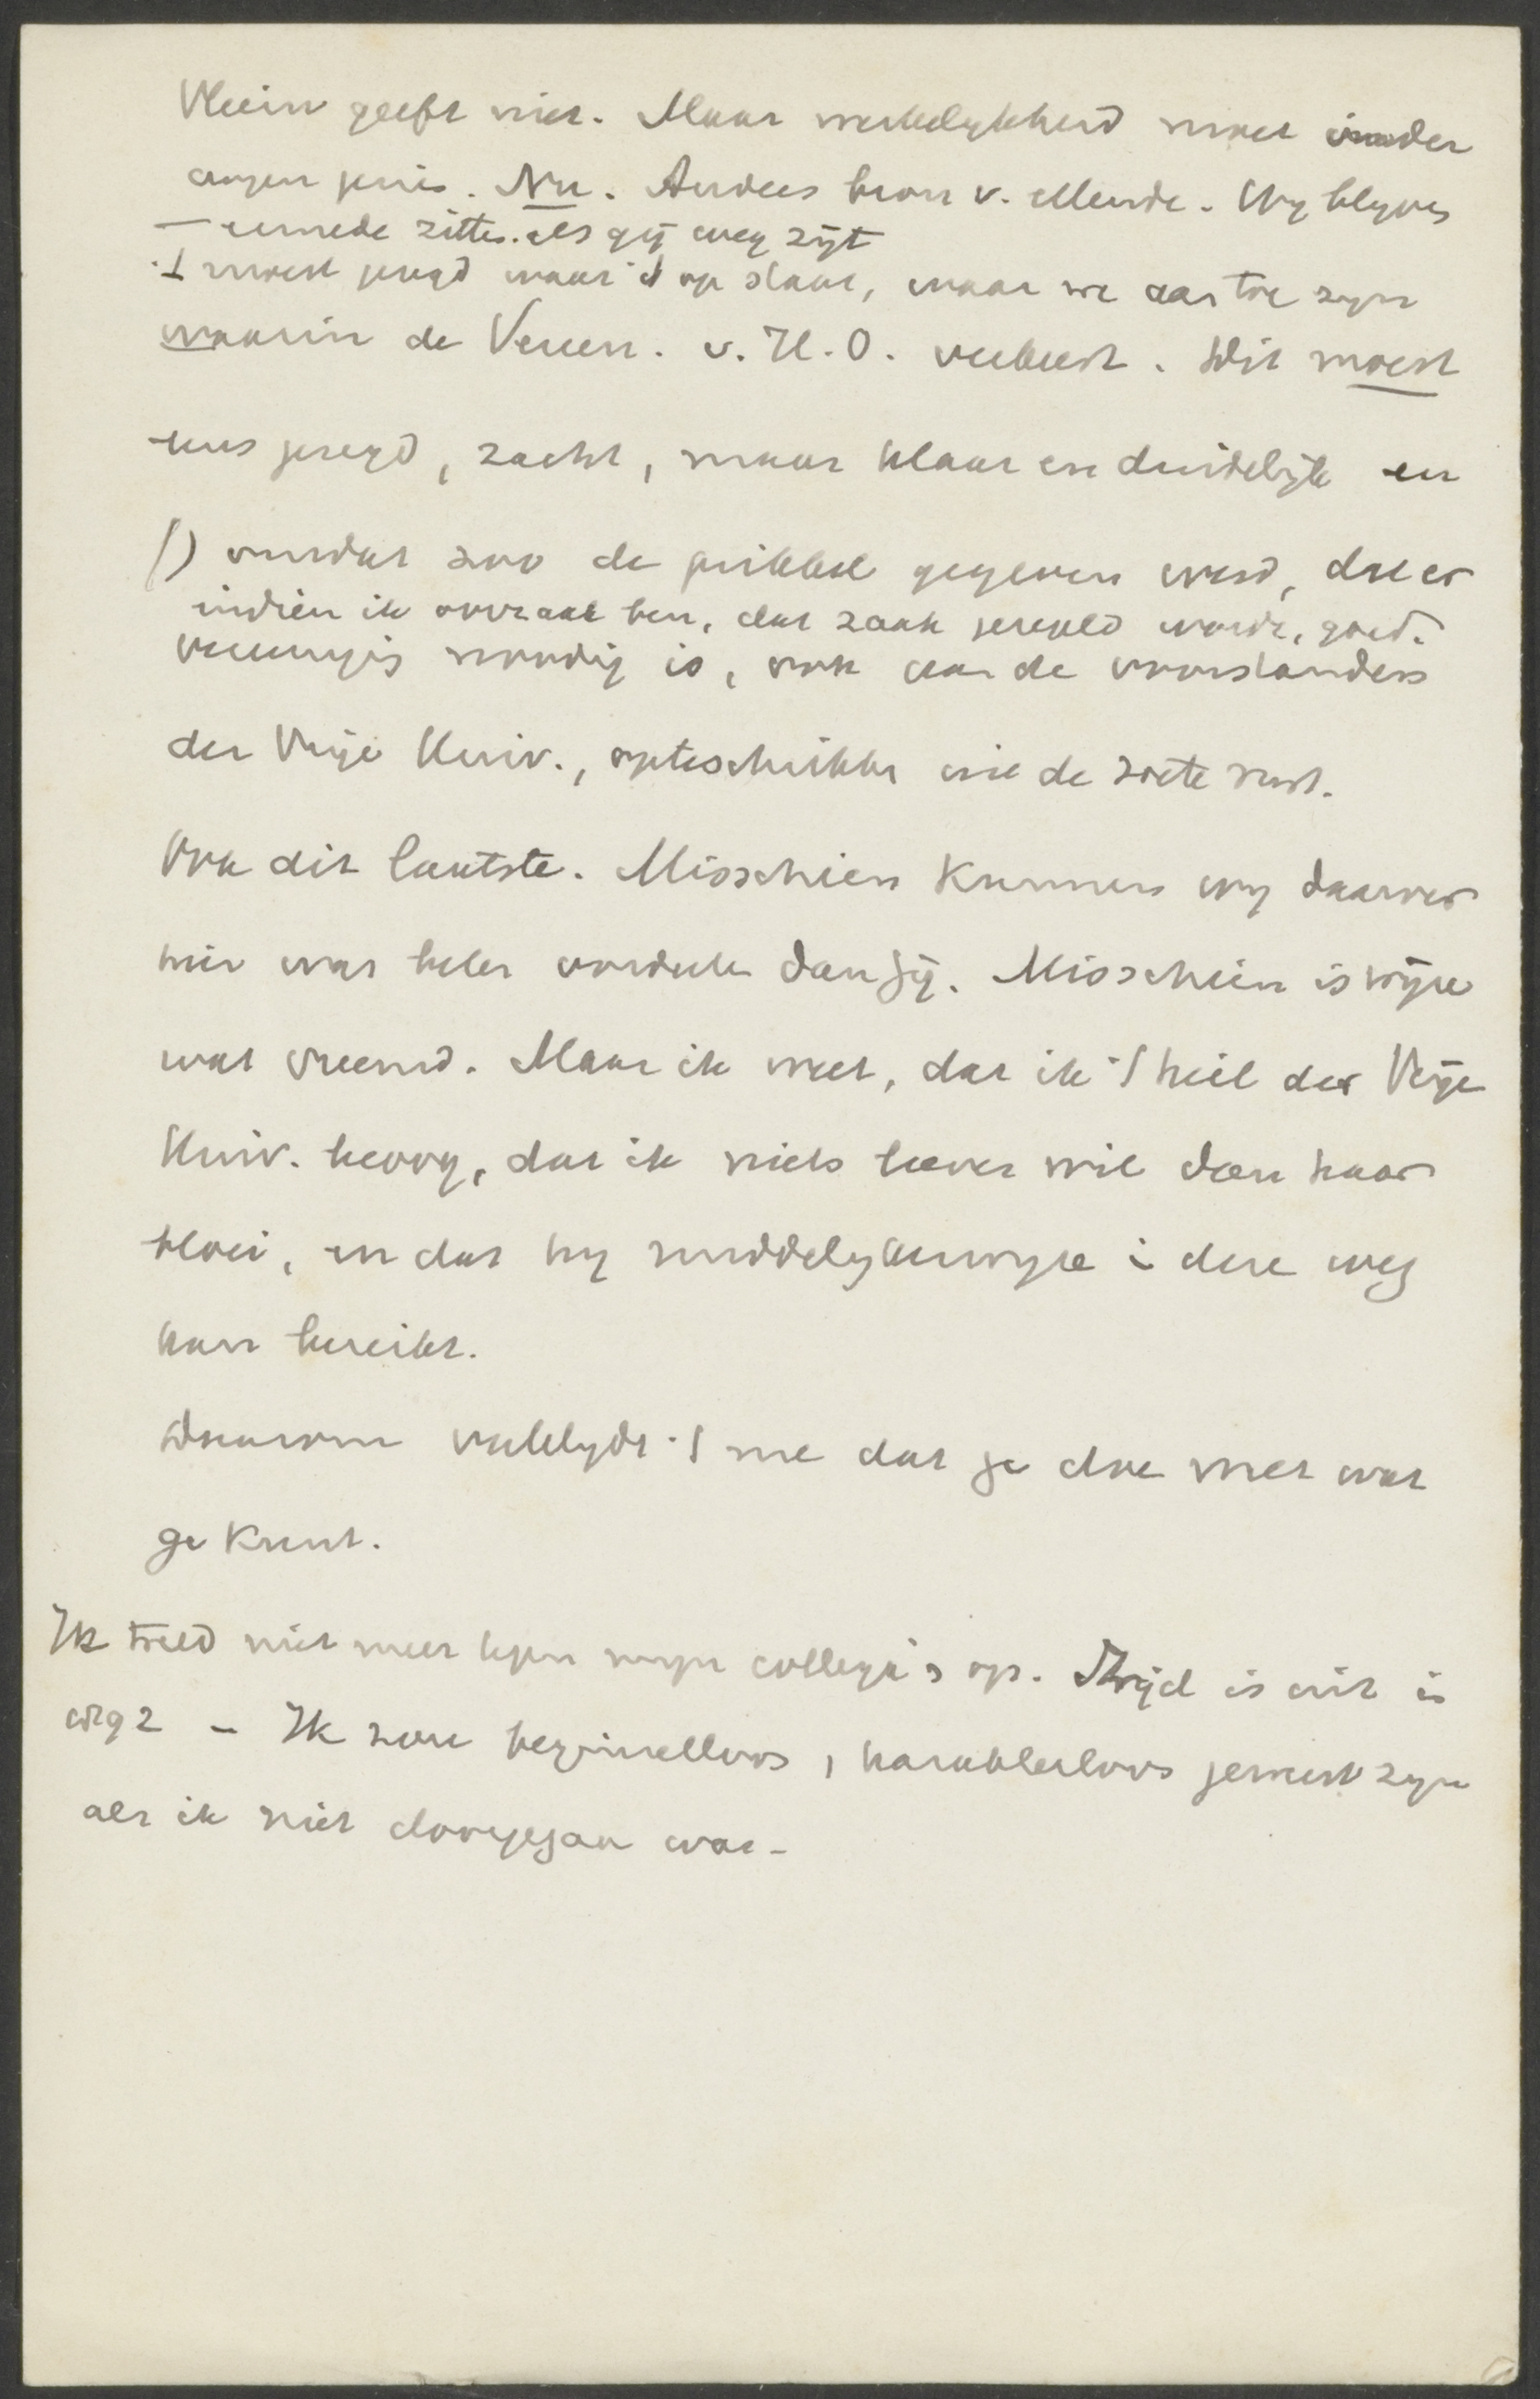 Vleien geeft niet. Maar werkelykheid moet onder
oogen gezien. Nu. Anders bron v. ellende. Wy blyven
ermede zitten. als gij weg zijt
't moest gezegd waar 't op staat, waar we aan toe zyn
waarin de Vereen. v. H.O. verkeert. Dit moest
eens gezegd, zacht, maar klaar en duidelijk en
() omdat zoo de prikkel gegeven werd, die er
indien ik oorzaak ben, dat zaak geregeld wordt, goed.
noodig is, ook aan de voorstanders
der Vrije Univ., opteschrikken uit de zoete rust.
Ook dit laatste. Misschien kunnen wy daarover
hier wat beter oordeelen dan gij. Misschien is wijze
wat vreemd. Maar ik weet, dat ik 't heil der Vrije
Univ. beoog, dat ik niets liever wil dan haar
bloei, en dat hy middelykerwyze in deze weg
kan bereikt.
Daarom verblydt 't me dat ge doe meer wat
ge kunt.
Ik treed niet meer tegen myn collega's op. Strijd is uit is
weg – Ik zou beginselloos, karakterloos geweest zyn
als ik niet doorgegaan was –